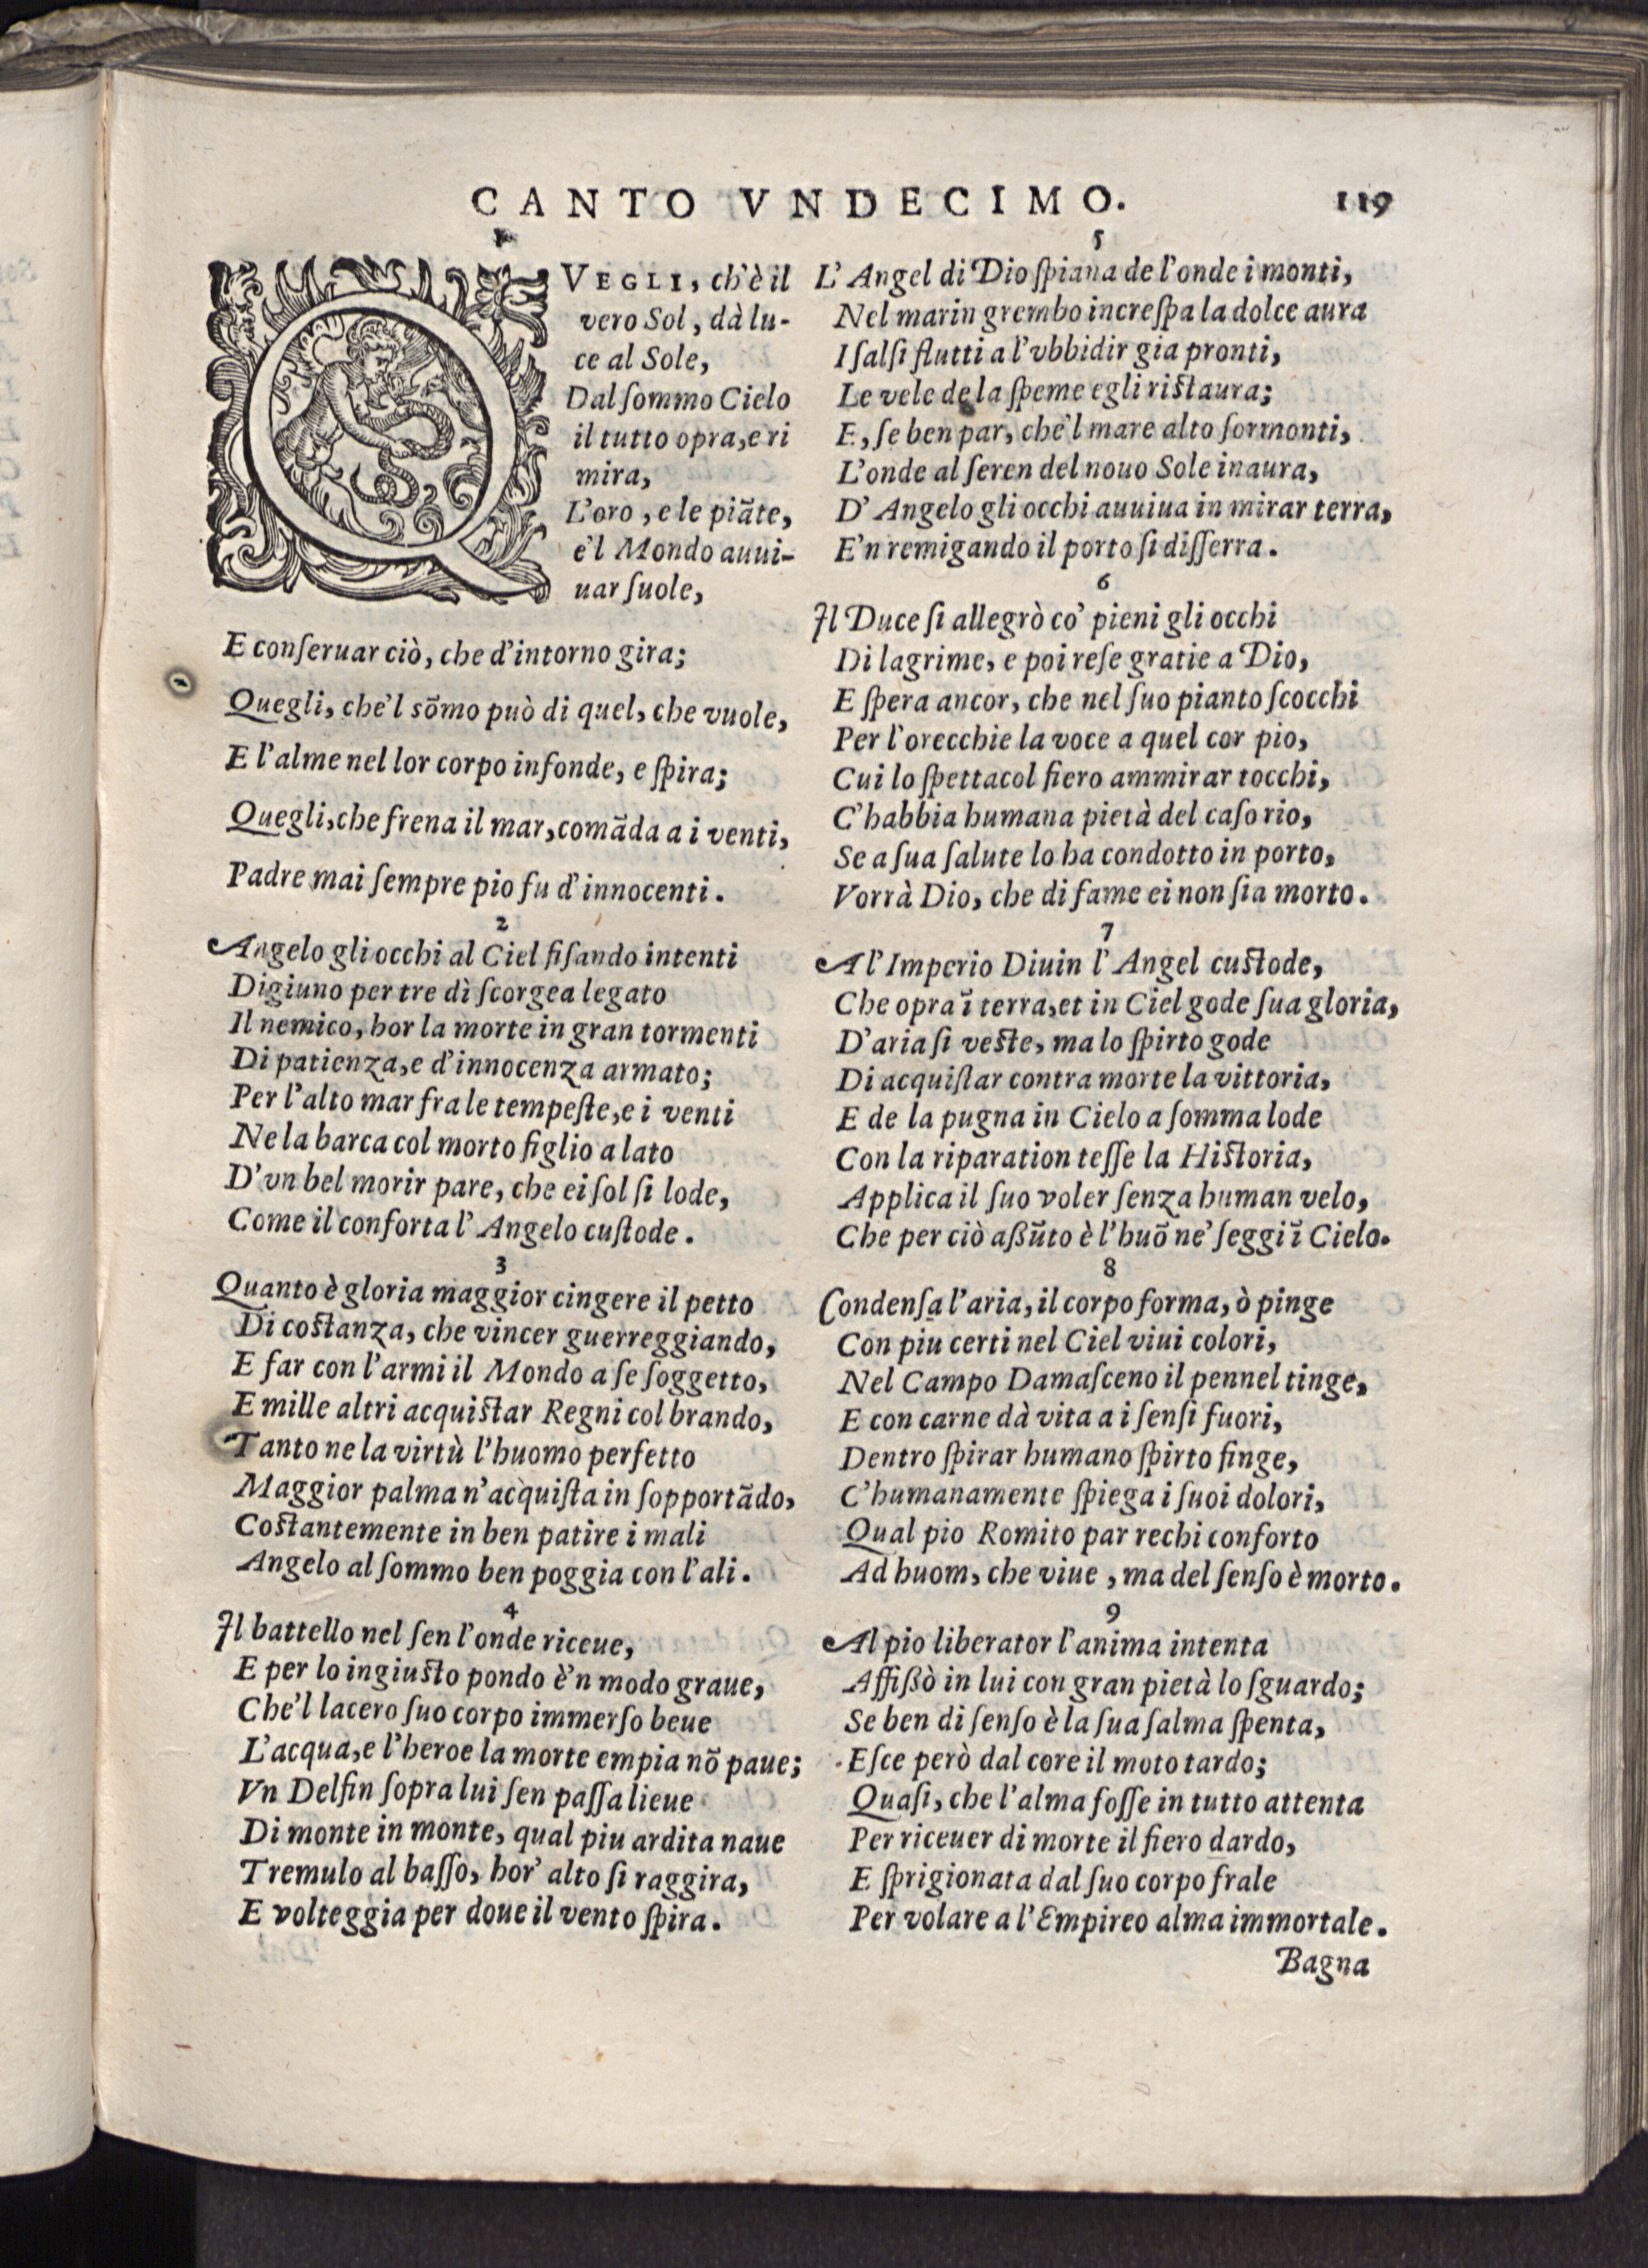 CANTO VNDECIMO. 119
1
QVEGLI, ch'è il
vero Sol, dà lu-
ce al Sole,
Dal ſommo Cielo
il tutto opra, e ri
mira,
L'oro, e le piãte,
e'l Mondo auui-
uar ſuole,
E conſeruar ciò, che d'intorno gira;
Quegli, che'l sõmo può di quel, che vuole,
E l'alme nel lor corpo infonde, e ſpira;
Quegli, che frena il mar, comãda a i venti,
Padre mai ſempre pio fu d'innocenti.
2
Angelo gli occhi al Ciel fiſando intenti
Digiuno per tre dì ſcorgea legato
Il nemico, hor la morte in gran tormenti
Di patienza, e d'innocenza armato;
Per l'alto mar fra le tempeſte, e i venti
Ne la barca col morto figlio a lato
D'vn bel morir pare, che ei ſol ſi lode,
Come il conforta l'Angelo cuſtode.
3
Quanto è gloria maggior cingere il petto
Di coſtanza, che vincer guerreggiando,
E far con l'armi il Mondo a ſe ſoggetto,
E mille altri acquiſtar Regni col brando,
Tanto ne la virtù l'huomo perfetto
Maggior palma n'acquiſta in ſopportãdo,
Coſtantemente in ben patire i mali
Angelo al ſommo ben poggia con l'ali.
4
Il battello nel ſen l'onde riceue,
E per lo ingiuſto pondo è'n modo graue,
Che'l lacero ſuo corpo immerſo beue
L'acqua, e l'heroe la morte empia nõ paue;
Vn Delfin ſopra lui ſen paſſa lieue
Di monte in monte, qual piu ardita naue
Tremulo al baſſo, hor' alto ſi raggira,
E volteggia per doue il vento ſpira.
5
L'Angel di Dio ſpiana de l'onde i monti,
Nel marin grembo increſpa la dolce aura
I ſalſi flutti a l'vbbidir gia pronti,
Le vele de la ſpeme egli riſtaura;
E, ſe ben par, che'l mare alto ſormonti,
L'onde al ſeren del nouo Sole inaura,
D'Angelo gli occhi auuiua in mirar terra,
E'n remigando il porto ſi diſſerra.
6
Il Duce ſi allegrò co' pieni gli occhi
Di lagrime, e poi reſe gratie a Dio,
E ſpera ancor, che nel ſuo pianto ſcocchi
Per l'orecchie la voce a quel cor pio,
Cui lo ſpettacol fiero ammirar tocchi,
C'habbia humana pietà del caſo rio,
Se a ſua ſalute lo ha condotto in porto,
Vorrà Dio, che di fame ei non ſia morto.
7
A l'Imperio Diuin l'Angel cuſtode,
Che opra ĩ terra, et in Ciel gode ſua gloria,
D'aria ſi veſte, ma lo ſpirto gode
Di acquiſtar contra morte la vittoria,
E de la pugna in Cielo a ſomma lode
Con la riparation teſſe la Hiſtoria,
Applica il ſuo voler ſenza human velo,
Che per ciò aßũto è l'huõ ne' ſeggi ĩ Cielo.
8
Condenſa l'aria, il corpo forma, ò pinge
Con piu certi nel Ciel viui colori,
Nel Campo Damaſceno il pennel tinge,
E con carne dà vita a i ſenſi fuori,
Dentro ſpirar humano ſpirto finge,
C'humanamente ſpiega i ſuoi dolori,
Qual pio Romito par rechi conforto
Ad huom, che viue, ma del ſenſo è morto.
9
Al pio liberator l'anima intenta
Affißò in lui con gran pietà lo ſguardo;
Se ben di ſenſo è la ſua ſalma ſpenta,
Eſce però dal core il moto tardo;
Quaſi, che l'alma foſſe in tutto attenta
Per riceuer di morte il fiero dardo,
E ſprigionata dal ſuo corpo frale
Per volare a l'Empireo alma immortale.
Bagna